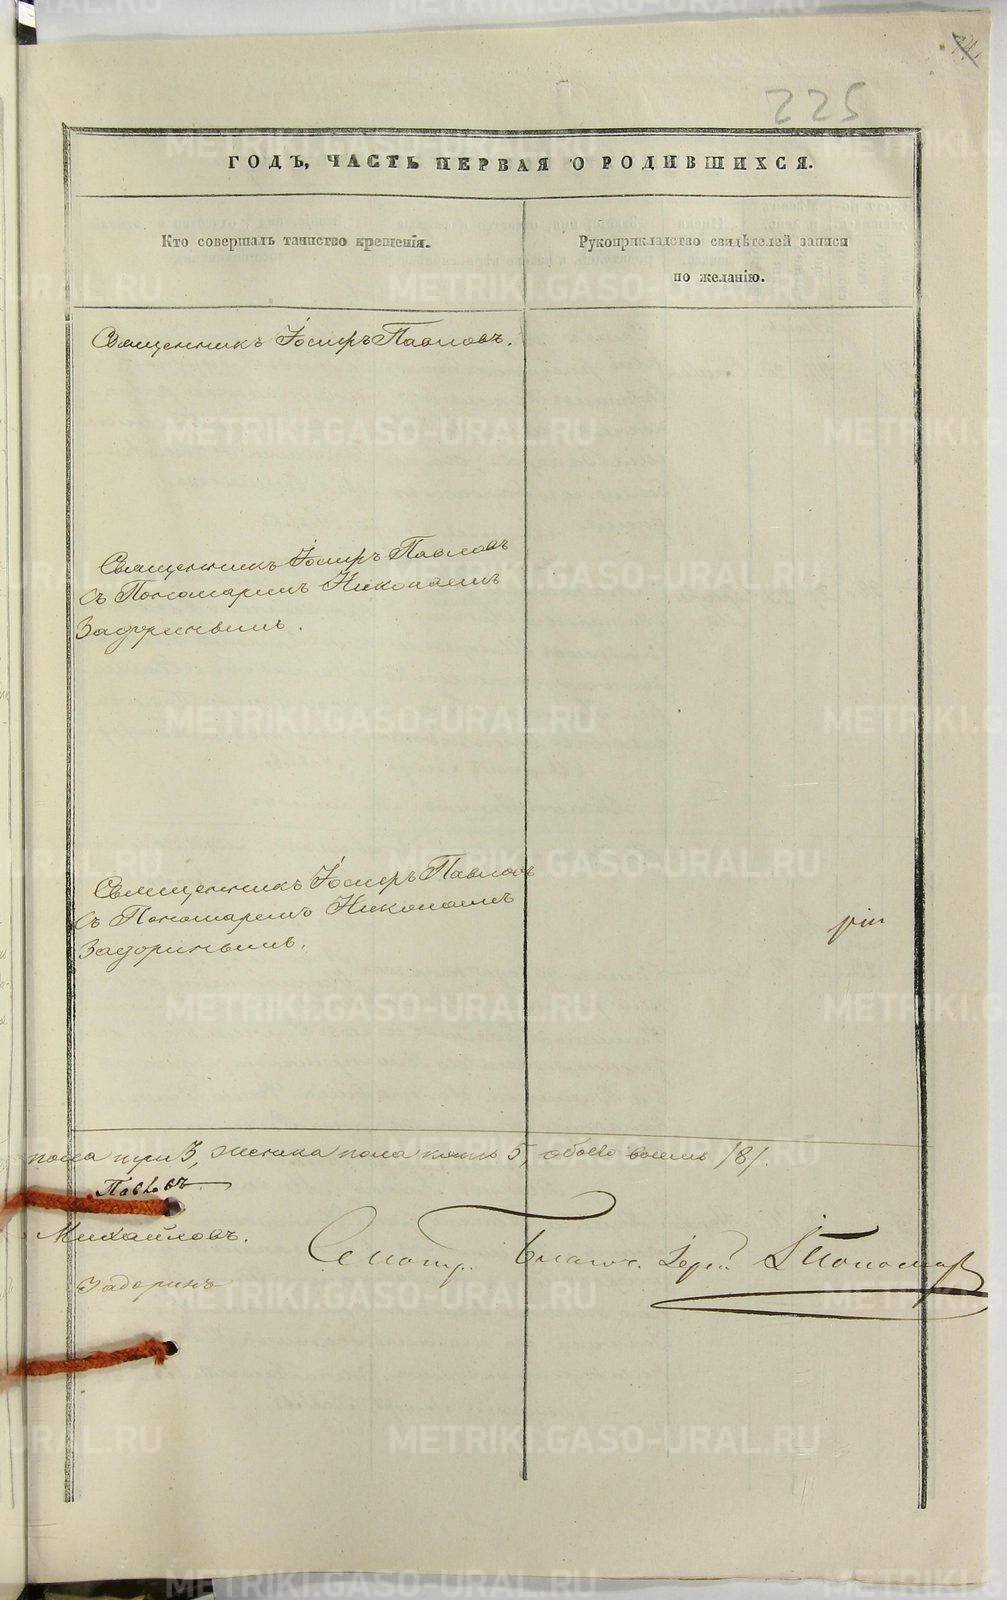 225
ГОДЪ, ЧАСТЬ ПЕРВАЯ О РОДИВШИХСЯ.
Кто совершалъ таинство крещенія.
Рукоприкладство свидѣтелей записи
по желанію.
Священникъ Іосифъ Павловъ.
Священникъ Іосифъ Павловъ
съ Пономаремъ Николаемъ
Задоринымъ.
Священникъ Іосифъ Павловъ
съ Пономаремъ Николаемъ
Задоринымъ.
пола три 3, женска пола пять 5, обоего восемь /8/.
Павловъ
Михайловъ.
Задоринъ
Смотр. Благоч. Іерей І Пономар
METRIKI.GASO-URAL.RU